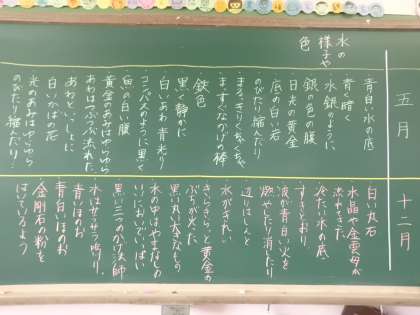 五月
十二月
水の
様子や
色
青白い水の底
青く暗く
水銀のように
銀の色の腹
日光の黄金
底の白い岩
のびたり縮んだり
まっすぐなかげの棒
鉄色
黒く静かに
白いあわ
コンパスのように黒く
魚の白い腹
黄金のあみはゆらゆら
あわはつぶつぶ流れた。
あわといっしょに
白いかばの花
光のあみはゆらゆら
のびたり縮んだり
白い丸石
水晶や金雲母が
流れてきた
冷たい水の底
すきとおり
波が青白い火を
燃やしたり消したり
辺りはしんと
水がきれい
きらきらっと黄金の
ぶちが光った
黒い丸い大きなもの
水の中はやまなしの
においでいっぱい
黒い三つのかげ法師
水はサラサラ鳴り、
青いほのお
青白いほのお
金剛石の粉を
はいているよう